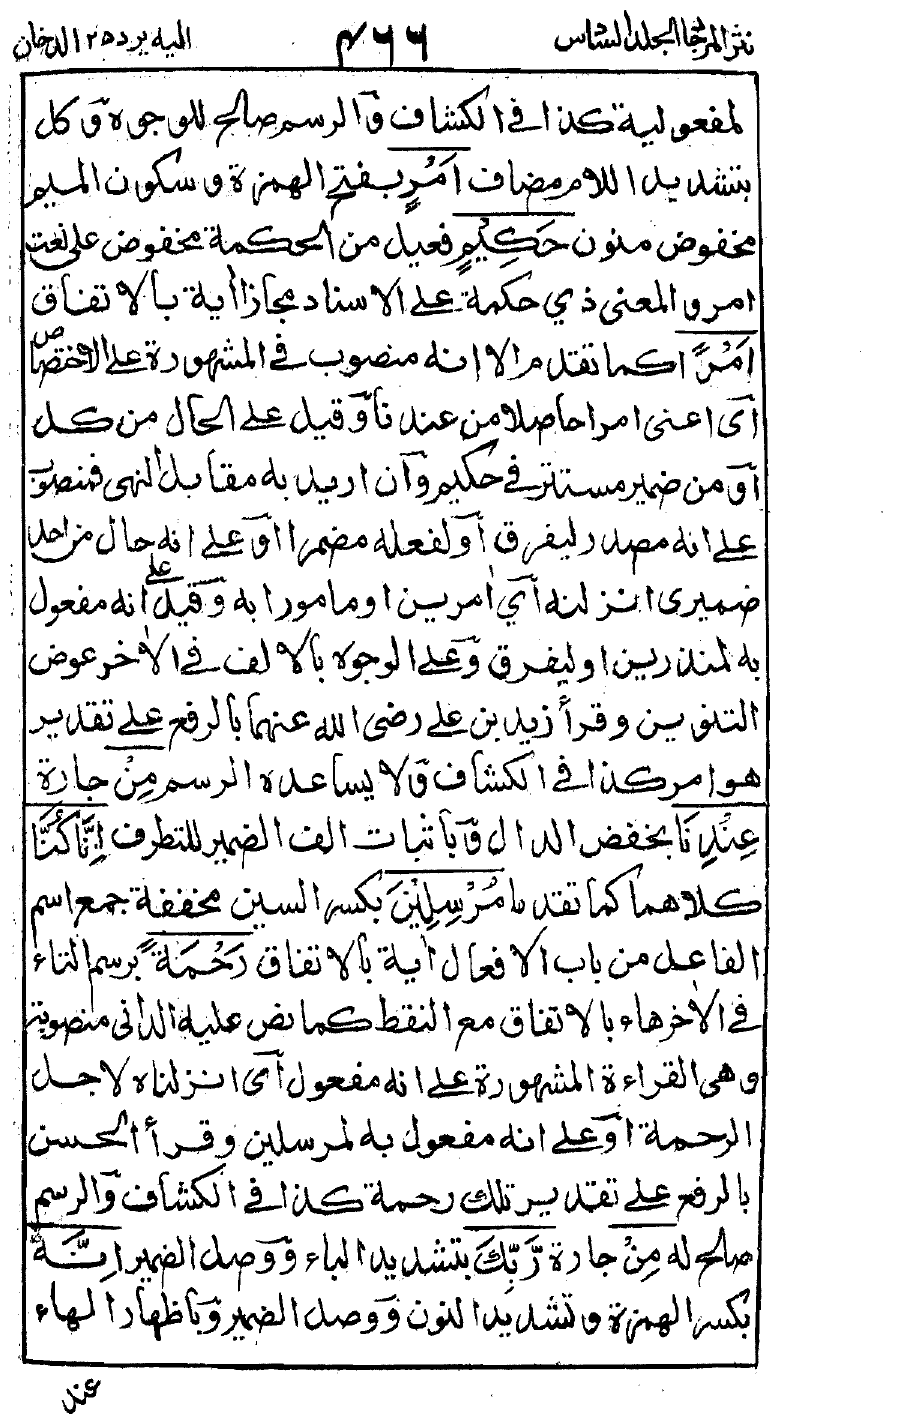 نثر المرجان الجلد السادس ٤٦٦ اليه يرد ٢٥ الدخان
لمفعولية كذا في الكشاف وآلرسم صالح للوجوه وكل
بتشديد اللام مضاف اَمْرٍ بفتح الهمزة وسكون الميم
مخفوض منون حَكِيْمٍ فعيل من الحكمة مخفوض على نعت
امر والمعنى ذي حكمة على الاسناد مجازا اية بالاتفاق
اَمْرًا كما تقدم الا انه منصوب في المشهورة على الاختصاص
آى اعنى امرا حاصلا من عندنا وقيل على الحال من كل
آو من ضمير مستتر في حكيم وآن اريد به مقابل النهى فمنصوب
على انه مصدر ليفرق آو لفعله مضمرا آو على انه حال من احد
ضميرى انزلنه آي آمرين او مامورا به وقيل على انه مفعول
به لمنذرين او ليفرق وعلى الوجوه بالالف في الاخر عوض
التنوين وقرأ زيد بن على رضى الله عنهما بالرفع على تقدير
هو امر كذا في الكشاف ولا يساعده الرسم مِنْ جارة
عِنْدِنَا بخفض الدال وباثبات الف الضمير للتطرف اِنَّا كُنَّا
كلاهما كما تقدما مُرْسِلِيْنَ بكسر السين مخففة جمع اسم
الفاعل من باب الافعال اية بالاتفاق رَحْمَةً برسم التاء
في الاخر هاء بالاتفاق مع النقط كما نص عليه الدانى منصوبة
وهى القراءة المشهورة على انه مفعول آى انزلناه لاجل
الرحمة آو على انه مفعول به لمرسلين وقرأ الحسن
بالرفع على تقدير تلك رحمة كذا في الكشاف وآلرسم
صالح له مِنْ جارة رَّبِّكَ بتشديد الباء ووصل الضمير اِنَّهٗ
بكسر الهمزة وتشديد النون ووصل الضمير وباظهار الهاء
عند